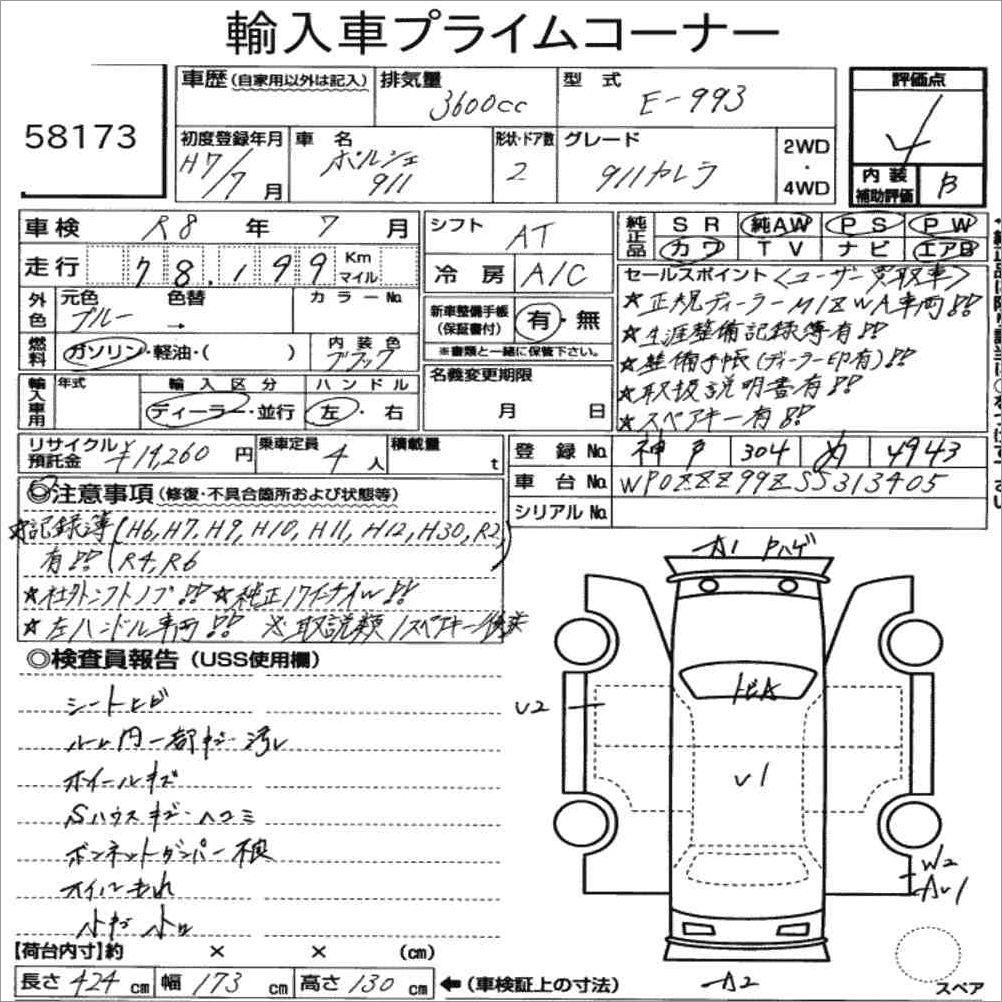 輸入車プライムコーナー
58173
車歴(自家用以外は記入)
排気量 3600cc
型式 E-993
評価点 4
初度登録年月 H7/7月
車名 ポルシェ 911
形状・ドア数 2
グレード 911カレラ
2WD・4WD
内装補助評価 B
車検 R8年7月
シフト AT
純正品 SR 純AW PS PW
カワ TV ナビ エアB
走行 78,199 Km マイル
冷房 A/C
セールスポイント〈ユーザー買取車〉
★正規ディーラーMIZWA車両!!
★生涯整備記録簿有!!
★整備手帳(ディーラー印有)!!
★取扱説明書有!!
★スペアキー有!!
外色 元色 ブルー 色替 → カラーNo.
新車整備手帳(保証書付) 有・無
※書類と一緒に保管下さい。
燃料 ガソリン・軽油・( )
内装色 ブラック
輸入車用 年式 輸入区分 ディーラー・並行
ハンドル 左・右
名義変更期限 月 日
リサイクル預託金 ¥14,260円
乗車定員 4人
積載量 t
登録No. 神戸 304 ぬ 4943
車台No. WP0ZZZ99ZSS313405
シリアルNo.
◎注意事項(修復・不具合箇所および状態等)
★記録簿(H6,H7,H9,H10,H11,H12,H30,R2,
有!!(R4,R6
★社外シフトノブ!! ★純正17インチAW!!
★左ハンドル車両!! ※取説類/スペアキー後送
◎検査員報告(USS使用欄)
シートヒビ
ルーム内一部キズ・汚れ
ホイールキズ
Sハウスキズ・ヘコミ
ボンネットダンパー不良
オイルもれ
小キズ 小凹
A1 Pハゲ
トビA
U2
U1
W2
AU1
A2
スペア
【荷台内寸】約 × × (cm)
長さ 424 cm 幅 173 cm 高さ 130 cm ←(車検証上の寸法)